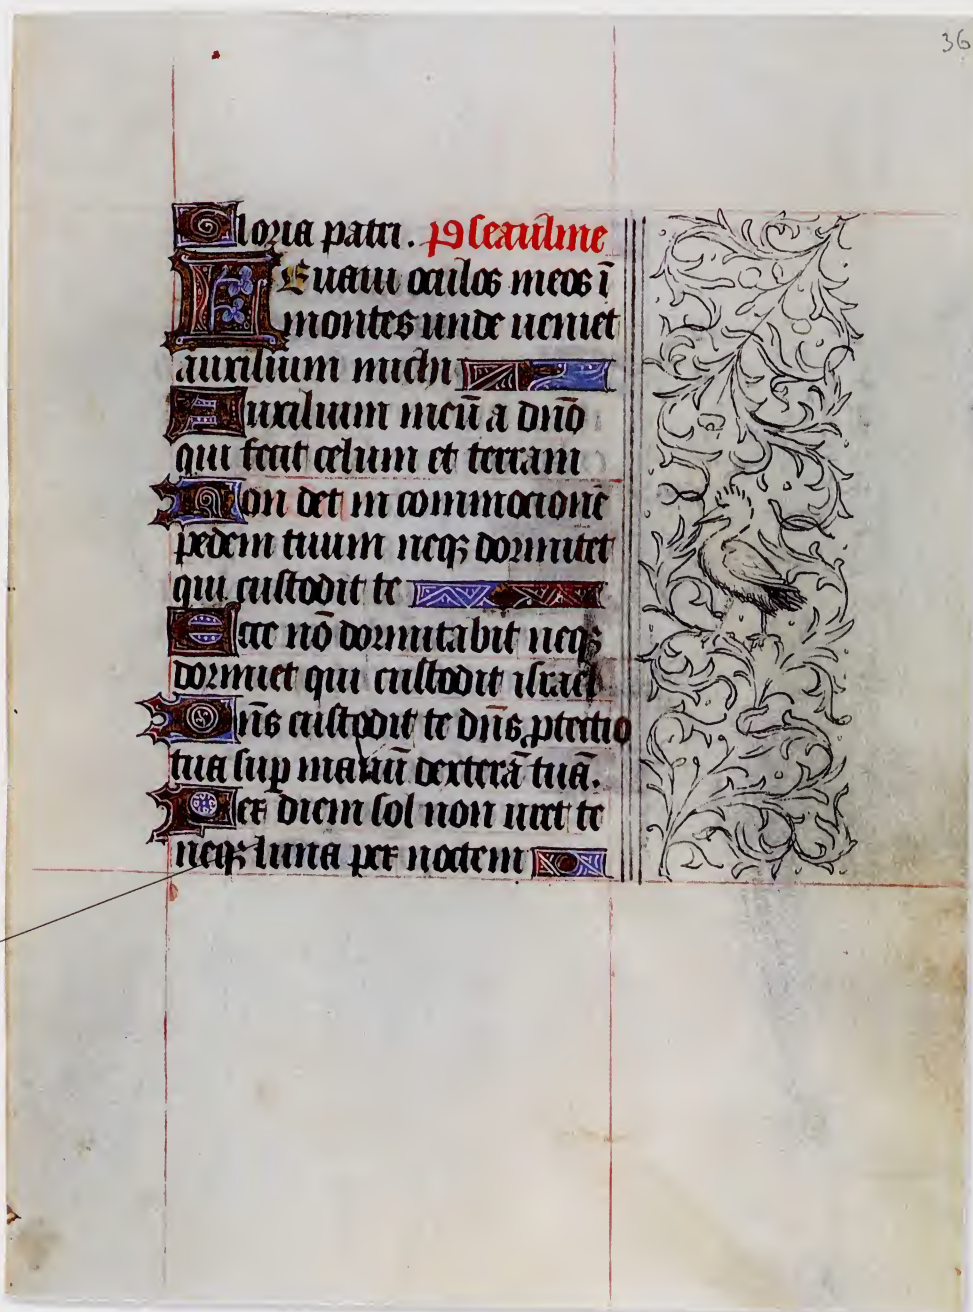 36
Gloria patri. ps cauline
LEuaui oculos meos ī
montes unde ueniet
auxilium michi
Auxilium meū a dnō
qui fecit celum et terram
Non det in commocionē
pedem tuum neqꝫ dormitet
qui custodit te
Ecce nō dormitabit neqꝫ
dormiet qui custodit israel
Dn̄s custodit te dn̄s ꝓtectio
tua suꝑ manū dexterā tuā.
Per diem sol non uret te
neqꝫ luna per noctem